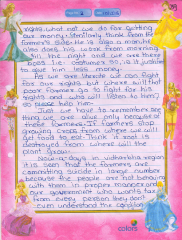 rights what not we do for getting
our money. Similarly think from the
farmer's side. He is also a
also does his work from morning
till the night and we are there
ie. customers so, is it justice
to give him less money.
As we are literate we can fight
for our rights but where will that
poor farmer go to fight for his
rights and who will listen to him,
so please help him.
Just we have to remember one
thing we are alive only because of
these farmers. If farmers stop
growing crops from where we will
get food to eat. Think it seed is
destroyed from where will the
plant grow.
Now-a-days in vidharbha region
it is seen that the farmers are
committing suicide in large number
because the people are not behaving
with them in proper manner and
our government who wants tax
from every person they don't
even understand the
colors